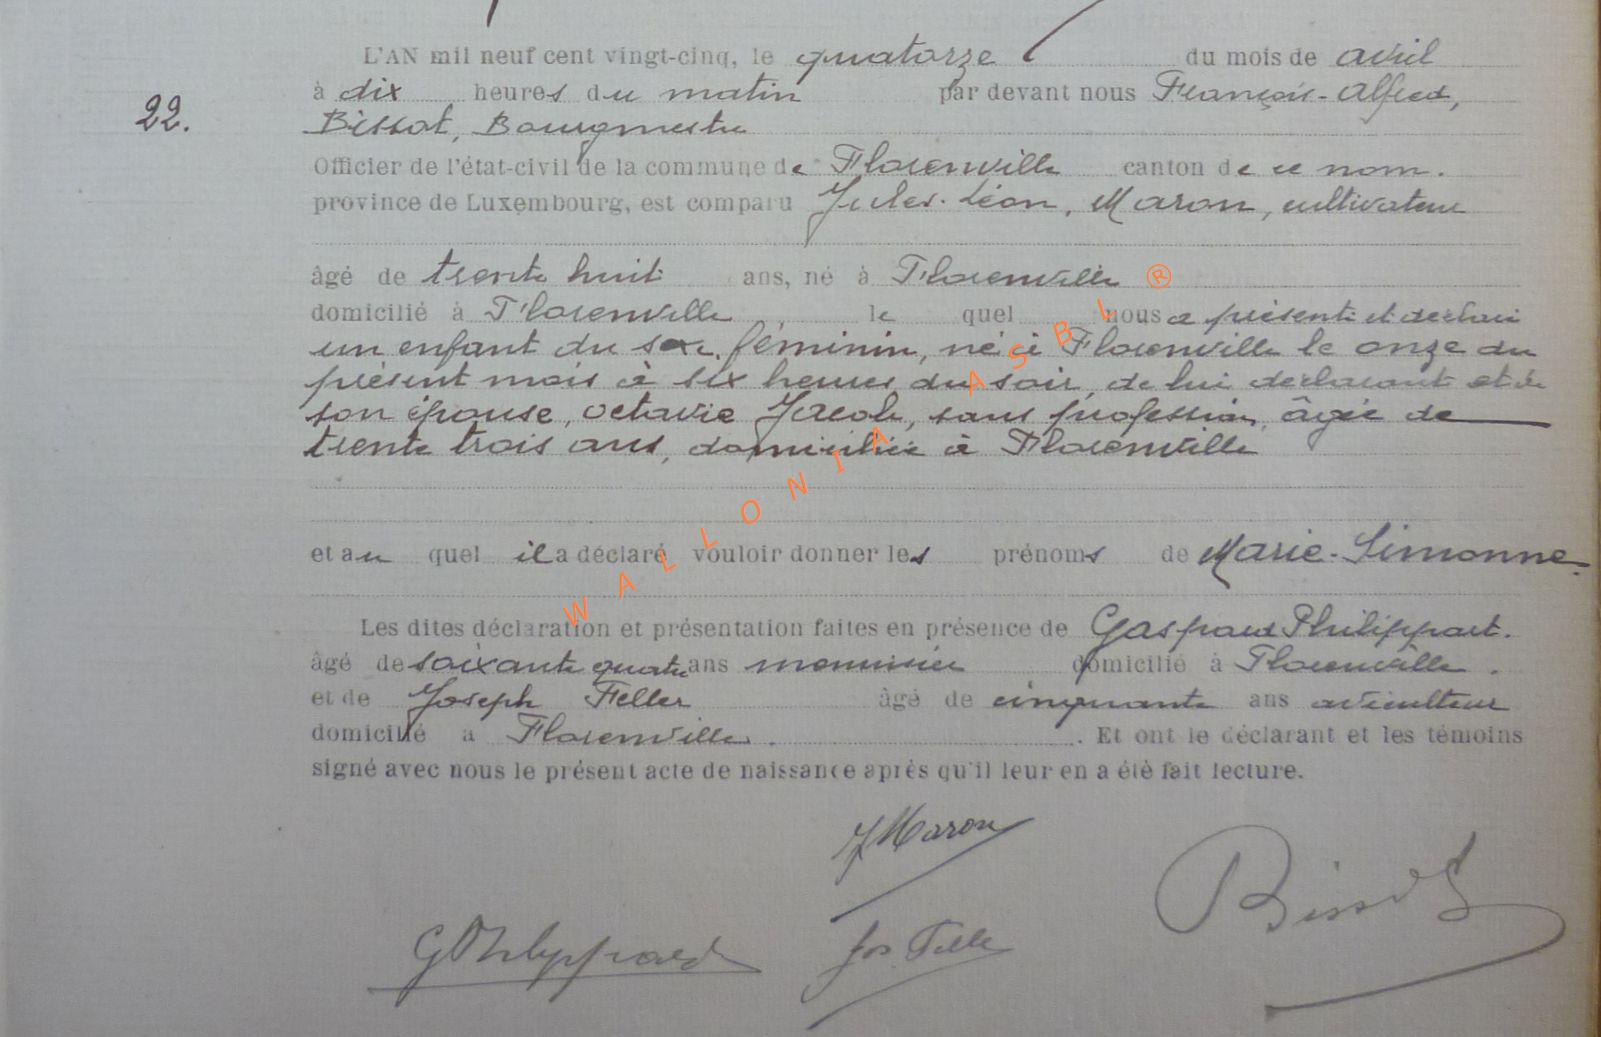 L'AN mil neuf cent vingt-cinq, le quatorze du mois de avril
à dix heures du matin par devant nous François-Alfred,
22.
Bissot, Bourgmestre
Officier de l'état-civil de la commune de Florenville canton de ce nom.
province de Luxembourg, est comparu Jules-Léon, Maron, cultivateur
âgé de trente huit ans, né à Florenville
domicilié à Florenville le quel nous a présenté et déclaré
un enfant du sexe féminin, né à Florenville le onze du
présent mois à six heures du soir, de lui déclarant et de
son épouse, Octavie Jacob, sans profession, âgée de
trente trois ans, domiciliée à Florenville
et au quel il a déclaré vouloir donner les prénoms de Marie-Simonne.
Les dites déclaration et présentation faites en présence de Gaspard Philippart.
âgé de soixante quatre ans menuisier domicilié à Florenville.
et de Joseph Feller âgé de cinquante ans aviculteur
domicilié à Florenville. . Et ont le déclarant et les témoins
signé avec nous le présent acte de naissance après qu'il leur en a été fait lecture.
J Maron
Bissot
G Philippart
Jos. Feller
WALLONIA ASBL ®